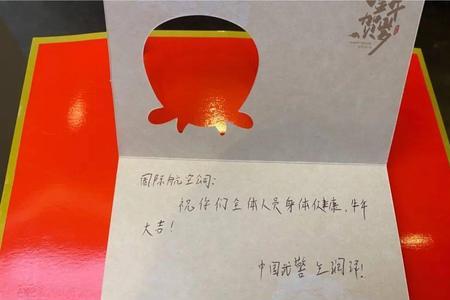 牛年
贺岁
国际航空公司:
祝你们全体人员身体健康、牛年
大吉!
中国武警